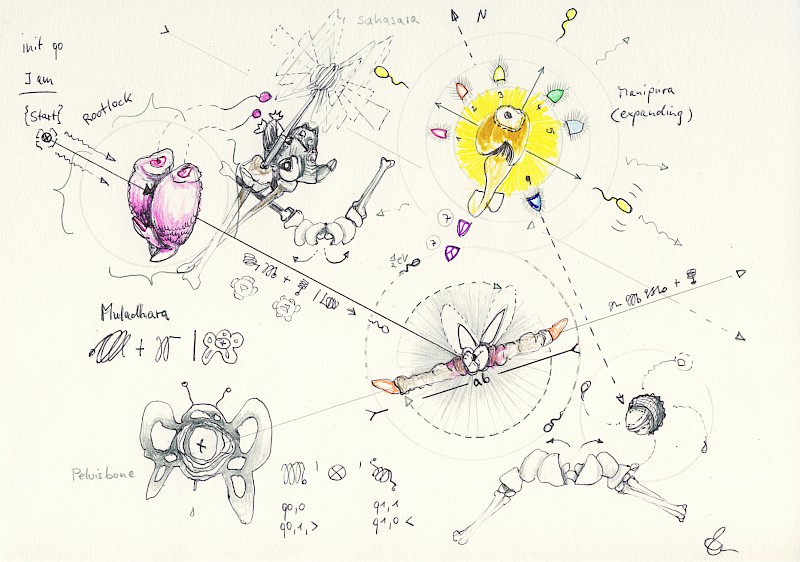 init go
I am
{Start}
Rootlock
sahasara
N
Manipura
(expanding)
1
2
3
4
5
7
7
Muladhara
+
ab
Pelvisbone
q0,0
q0,1,>
q1,1
q1,0 <